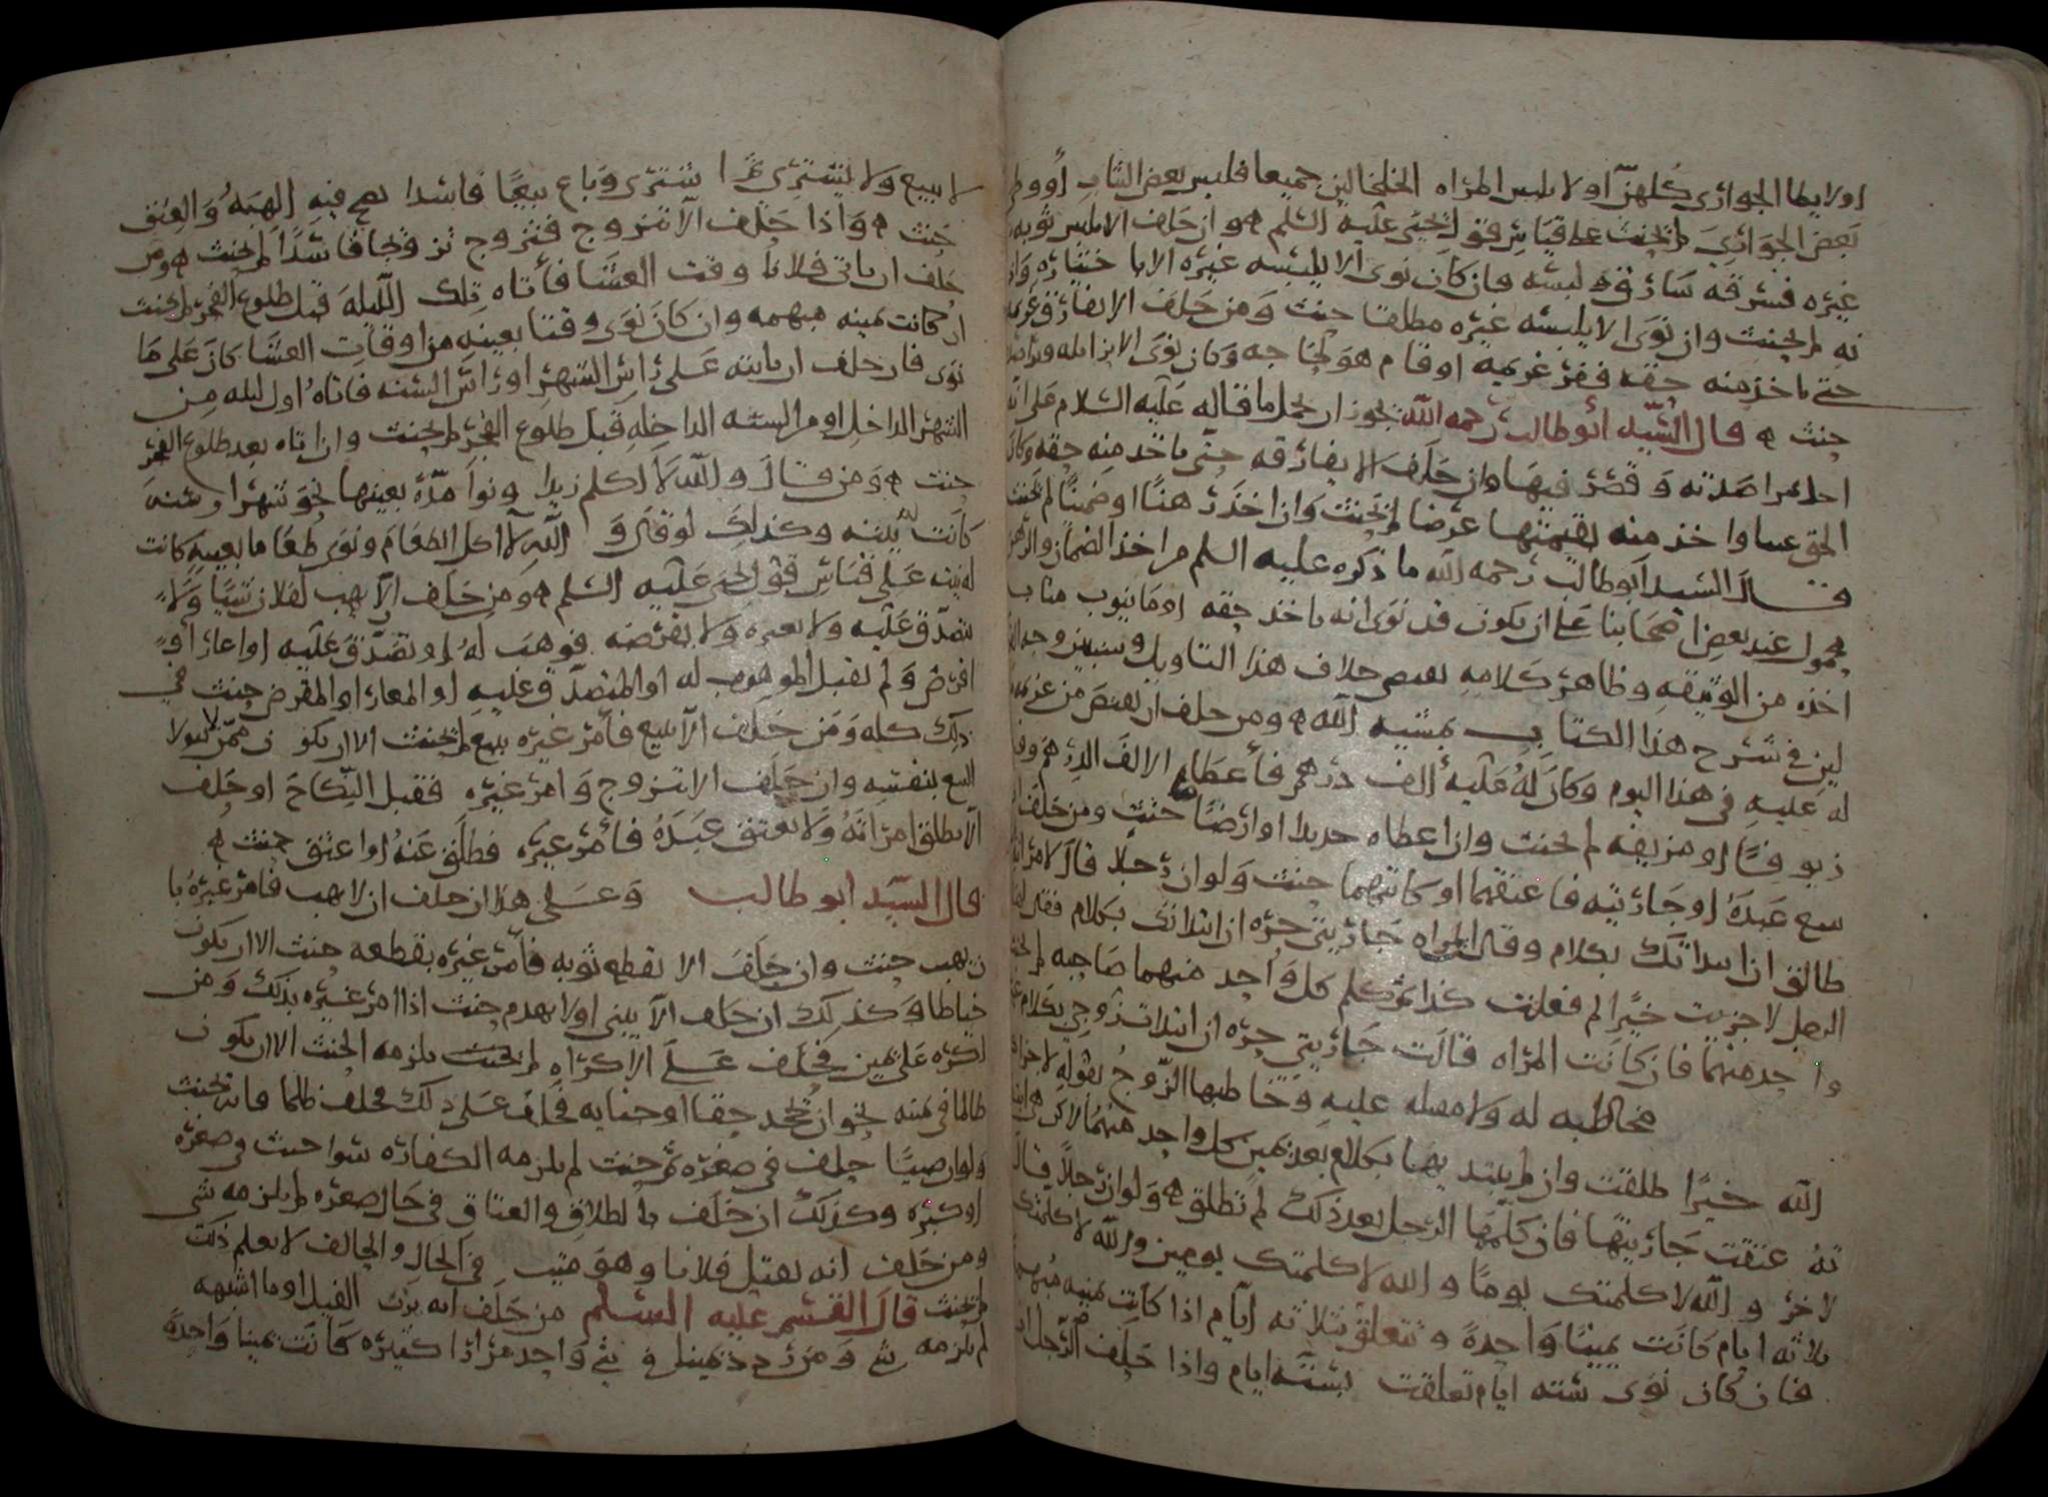 او لا يطا الجوارى كلهن او لا يلبس المراه الخلخالين جميعا فلبس بعض الثياب او وطى
بعض الجوارى لم يحنث على قياس قول يحيى عليه السلم ه وان حلف الا يلبس ثوبه
غيره فسرقه سارق فلبسه فان كان نوى الا يلبسه غيره الا باختياره واذ
نه لم يحنث وان نوى الا يلبسه غيره مطلقا حنث ومن حلف الا يفارق غريمه
حتى ياخذ منه حقه ففر غريمه او قام هو لحاجه وكان نوى الا يزايله
حنث ه قال السيد ابو طالب رحمه الله يجوز ان يحمل ما قاله عليه السلام على انه
وان حلف الا يفارقه حتى ياخذ منه حقه وكان
الحق عينا واخذ منه بقيمتها عرضا لم يحنث وان اخذ رهنا او ضمينا لم يحنث
قال السيد ابو طالب رحمه الله ما ذكره عليه السلم من اخذ الضمان والرهن
محمول عند بعض اصحابنا على ان يكون قد نوى انه ياخذ حقه او ما ينوب مناب
اخذه من الوثيقه وظاهر كلامه يقتضي خلاف هذا التاويل وسنبين وجه
في شرح هذا الكتاب بمشيه الله ه ومن حلف ان يقبض من غريمه
له عليه في هذا اليوم وكان له عليه الف درهم فاعطاه الالف الدرهم
زيوفا او مزيفه لم يحنث وان اعطاه حديدا او ارضا حنث ومن حلف
بيع عبده او جاريته فاعتقهما او كاتبهما حنث ولو ان رجلا قال لامراته
طالق ان ابتداتك بكلام وقالت المراه جاريتي حره ان ابتداتك بكلام فقال لها
البعل لا جزيت خيرا لم فعلت كذا ثم كلم كل واحد منهما صاحبه لم يحنث
واحد منهما فان كانت المراه قالت جاريتي حره ان ابتدات زوجي بكلام
مخاطبه له ولا مقبله عليه وخاطبها الزوج بقوله لا جزاك
الله خيرا طلقت وان لم يبتد بها بكلام بعد يمين كل واحد منهما
عتقت جاريتها فان كلمها الرجل بعد ذلك لم تطلق ه ولو ان رجلا قال
لاخر والله لا كلمتك يوما والله لا كلمتك يومين والله لا كلمتك
ثلاثه ايام كانت يمينا واحدة وتتعلق بثلاثه ايام اذا كانت يمينه مبهمه
فان كان نوى سته ايام تعلقت بسته ايام واذا حلف الرجل ان
لا يبيع ولا يشترى ثم اشترى وباع بيعا فاسدا يصح فيه الهبه والعتق
حنث ه واذا حلف الا تتزوج فتزوج تزوجا فاسدا لم يحنث ه ومن
حلف ان ياتي فلانا وقت العشا فاتاه تلك الليله قبل طلوع الفجر لم يحنث
ان كانت يمينه مبهمه وان كان نوى وقتا بعينه من اوقات العشا كان على ما
نوى فان حلف ان ياتيه على راس الشهر او راس السنه فاتاه اول ليله من
الشهر الداخل او من السنه الداخله قبل طلوع الفجر لم يحنث وان اتاه بعد طلوع الفجر
حنث ه ومن قال والله لا اكلم زيدا ونوا مدة بعينها نحو شهر او سنه
كانت له نيته وكذلك لو قال والله لا اكل الطعام ونوى طعاما بعينه كانت
له نيته على قياس قول يحيى عليه السلم ه ومن حلف الا يهب لفلان شيئا ولا
يتصدق عليه ولا يعيره ولا يقرضه فوهب له او تصدق عليه او اعار او
اقرض ولم يقبل الموهوب له او المتصدق عليه او المعار او المقرض حنث في
ذلك كله ومن حلف الا يبيع فامر غيره ببيع لم يحنث الا ان يكون ممن لا يتولا
البيع بنفسه وان حلف الا تتزوج وامر غيره فقبل النكاح او حلف
الا يطلق امراته ولا يعتق عبده فامر غيره فطلق عنه او اعتق حنث ه
قال السيد ابو طالب وعلى هذا ان حلف ان لا يهب فامر غيره با
ن يهب حنث وان حلف الا يقطع ثوبه فامر غيره بقطعه حنث الا ان يكون
خياطا وكذلك ان حلف الا يبني او لا يهدم حنث اذا امر غيره بذلك ومن
اكره على يمين فحلف على الاكراه لم يحنث يلزمه الحنث الا ان يكون
ظالما في يمينه نحو ان يجحد حقا او جنايه فحلف على ذلك فحلف ظالما فانه يحنث
ولو ان صبيا حلف في صغره ثم حنث لم يلزمه الكفاره سوا حنث في صغره
او كبره وكذلك ان حلف بالطلاق والعتاق في حال صغره لم يلزمه شي
ومن حلف انه يقتل فلانا وهو ميت في الحال والحالف لا يعلم ذلك
لم يحنث قال القسم عليه السلم من حلف انه يزن الفيل او ما اشبهه
لم يلزمه شي ومن ردد يمينا في شي واحد مرارا كثيره كانت يمينا واحدة